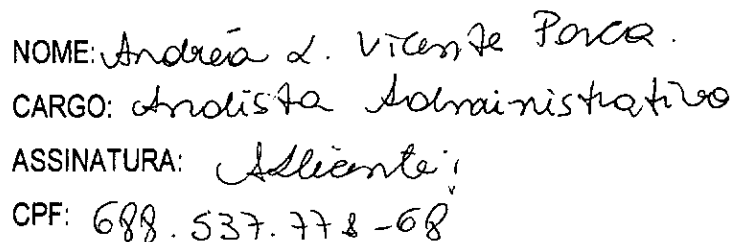 NOME: Andréa L. Vicente Porca.
CARGO: Analista Administrativo
ASSINATURA: ALVicente
CPF: 688.537.778-68